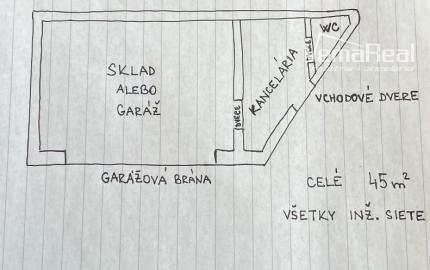 SKLAD
ALEBO
GARÁŽ
DVERE
KANCELÁRIA
DVERE
WC
VCHODOVÉ DVERE
GARÁŽOVÁ BRÁNA
CELÉ 45 m²
VŠETKY INŽ. SIETE